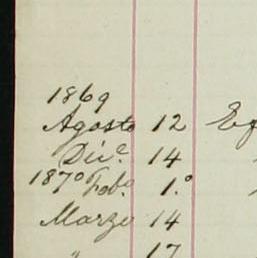 1869
Agosto 12
Dic.e 14
1870 Feb.o 1.o
Marzo 14
" 17